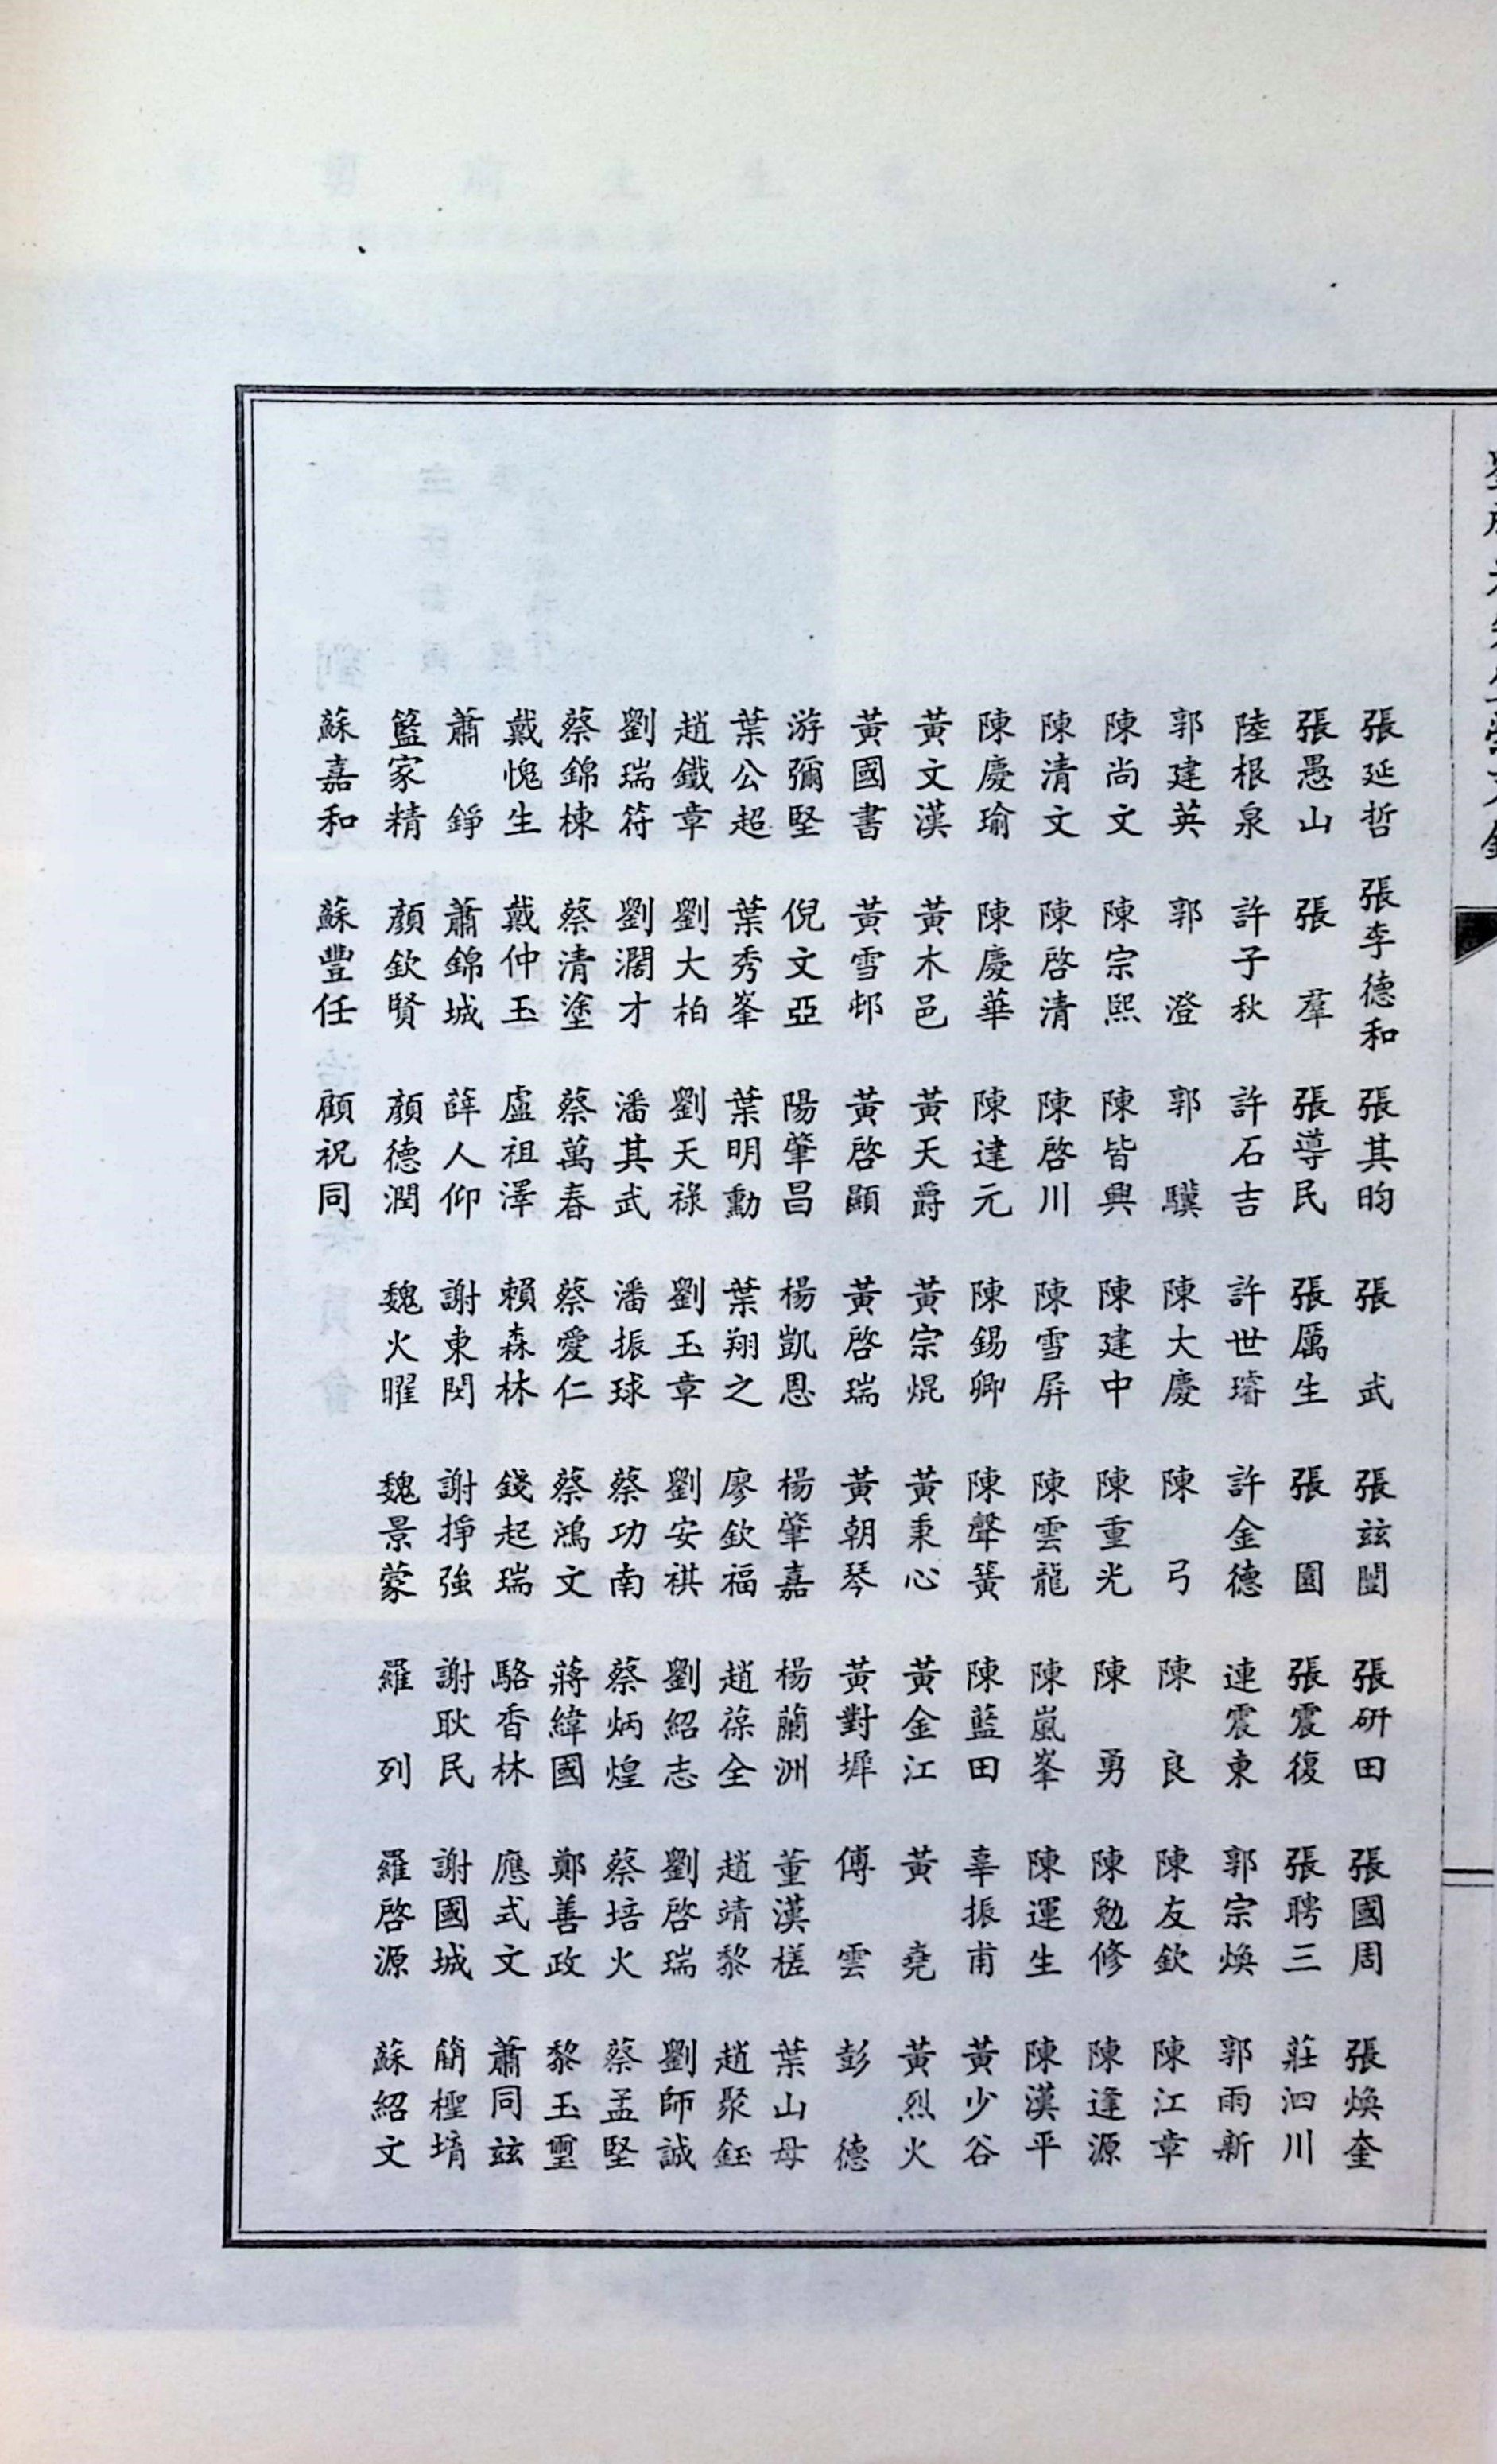 張延哲 張李德和 張其昀 張武 張茲闓 張研田 張國周 張煥奎
張愚山 張羣 張導民 張厲生 張園 張震復 張聘三 莊泗川
陸根泉 許子秋 許石吉 許世璿 許金德 連震東 郭宗煥 郭雨新
郭建英 郭澄 郭驥 陳大慶 陳弓 陳良 陳友欽 陳江章
陳尚文 陳宗熙 陳皆興 陳建中 陳重光 陳勇 陳勉修 陳逢源
陳清文 陳啓清 陳啓川 陳雪屏 陳雲龍 陳嵐峯 陳運生 陳漢平
陳慶瑜 陳慶華 陳達元 陳錫卿 陳聲簧 陳藍田 辜振甫 黃少谷
黃文漢 黃木邑 黃天爵 黃宗焜 黃秉心 黃金江 黃堯 黃烈火
黃國書 黃雪邨 黃啓顯 黃啓瑞 黃朝琴 黃對墀 傅雲 彭德
游彌堅 倪文亞 陽肇昌 楊凱恩 楊肇嘉 楊蘭洲 董漢槎 葉山母
葉公超 葉秀峯 葉明勳 葉翔之 廖欽福 趙葆全 趙靖黎 趙聚鈺
趙鐵章 劉大柏 劉天祿 劉玉章 劉安祺 劉紹志 劉啓瑞 劉師誠
劉瑞符 劉濶才 潘其武 潘振球 蔡功南 蔡炳煌 蔡培火 蔡孟堅
蔡錦棟 蔡清塗 蔡萬春 蔡愛仁 蔡鴻文 蔣緯國 鄭善政 黎玉璽
戴愧生 戴仲玉 盧祖澤 賴森林 錢起瑞 駱香林 應式文 蕭同茲
蕭錚 蕭錦城 薛人仰 謝東閔 謝掙強 謝耿民 謝國城 簡檉堉
籃家精 顏欽賢 顏德潤 魏火曜 魏景蒙 羅列 羅啓源 蘇紹文
蘇嘉和 蘇豐任 顧祝同